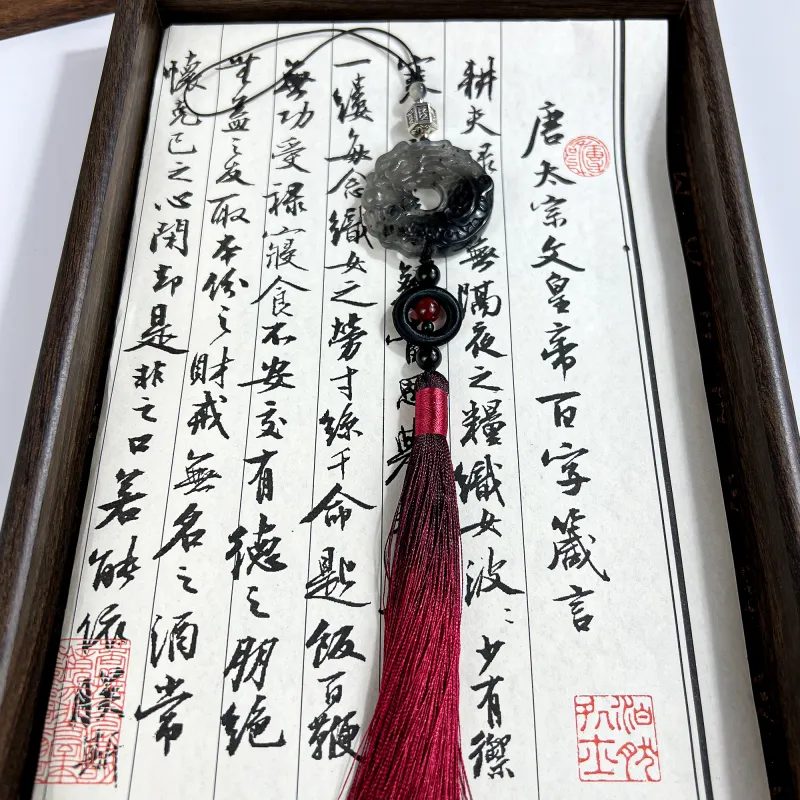 唐太宗文皇帝百字箴言
耕夫碌無隔夜之糧織女波〻少有禦
寒思
一縷每念織女之勞寸絲千命匙飯百鞭
無功受祿寢食不安交有德之朋絶
無益之友取本份之財戒無名之酒常
懷克己之心閉却是非之口若能依朕斯